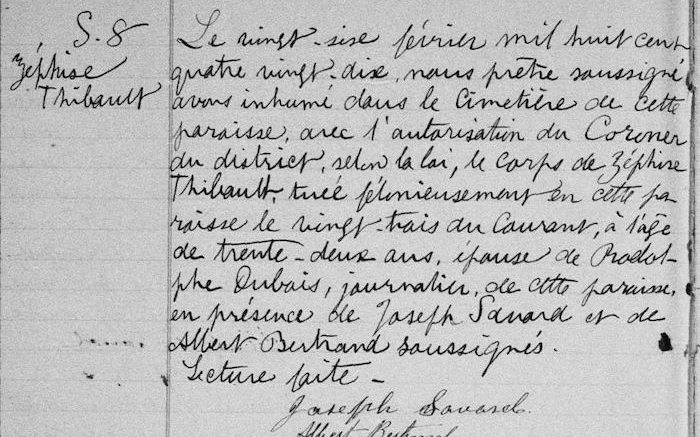 S. 8
Zéphise
Thibault
Le vingt-sixe février mil huit cent
quatre vingt-dix, nous prêtre soussigné
avons inhumé dans le Cimetière de cette
paraisse, avec l'autorisation du Coroner
du district, selon la loi, le corps de Zéphise
Thibault, tuée félonieusement en cette pa
raisse le vingt-trais du Courant, à l'âge
de trente-deux ans, épouse de Rodol-
phe Dubais, journalier, de cette paraisse,
en présence de Joseph Savard et de
Albert Bertrand soussignés.
Lecture faite -
Joseph Savard
Albert Bertrand